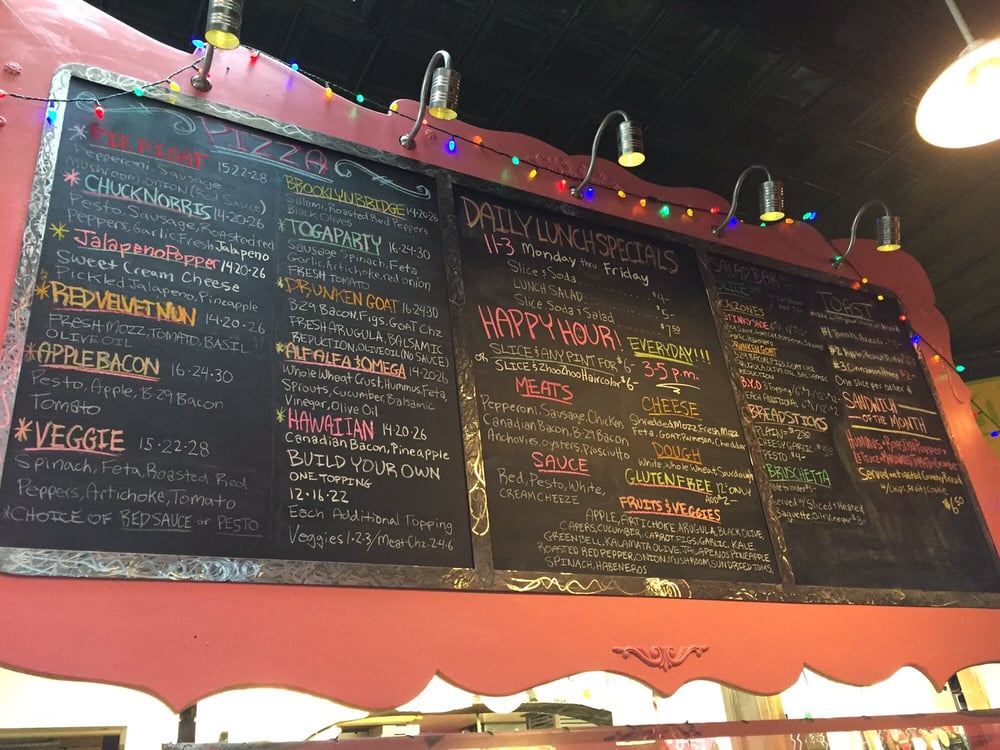 PIZZA
*PIE FIGHT 15-22-28
Pepperoni, Sausage
Mushroom, onion (Red Sauce)
*CHUCK NORRIS 14-20-26
Pesto, Sausage, Roasted red
Peppers, Garlic Fresh Jalapeno
*Jalapeno Popper 14-20-26
Sweet Cream Cheese
Pickled Jalapeno, Pineapple
*RED VELVET NUN 14-20-26
FRESH MOZZ, TOMATO, BASIL
OLIVE OIL
*APPLE BACON 16-24-30
Pesto, Apple, B-29 Bacon
Tomato
*VEGGIE 15-22-28
Spinach, Feta, Roasted Red
Peppers, Artichoke, Tomato
*CHOICE OF RED SAUCE or PESTO
BROOKLYN BRIDGE 14-20-26
Salami, Roasted Red Peppers
Black Olives
*TOGA PARTY 16-24-30
Sausage, Spinach, Feta
Garlic, Artichoke, red onion
FRESH Tomato
*DRUNKEN GOAT 16-24-30
B29 Bacon, Figs, GOAT Chz
FRESH ARUGULA, BALSAMIC
REDUCTION, OLIVE OIL (NO SAUCE)
*ALFALFA & OMEGA 14-20-26
Whole Wheat Crust, Hummus, Feta,
Sprouts, cucumber, Balsamic
Vinegar, Olive Oil
*HAWAIIAN 14-20-26
Canadian Bacon, Pineapple
BUILD YOUR OWN
ONE TOPPING
12-16-22
Each Additional Topping
Veggies 1-2-3/Meat-Chz-2-4-6
DAILY LUNCH SPECIALS
11-3 Monday thru Friday
Slice & Soda
LUNCH SALAD 4-
Slice Soda & Salad 5-
$7.50
HAPPY HOUR!
EVERYDAY!!!
SLICE & ANY PINT FOR $6-
OR SLICE & ZhooZhoo Haircolor $6-
3-5 p.m.
MEATS
Pepperoni, Sausage, Chicken
Canadian Bacon, B-21 Bacon
Anchovies, oysters, Prosciutto
SAUCE
Red, Pesto, White,
CREAM CHEEZE
CHEESE
Shredded Mozz, Fresh Mozz
Feta, Goat, Parmesan, Cheddar
DOUGH
White, Whole Wheat, Sourdough
GLUTEN FREE 12" ONLY
ADD $2-
FRUITS & VEGGIES
APPLE, ARTICHOKE, ARUGULA, BLACK OLIVE
CAPERS, CUCUMBER, CARROT, FIGS, GARLIC, KALE,
GREEN BELL, KALAMATA OLIVE, JALAPENOS, PINEAPPLE
ROASTED RED PEPPER, ONION, MUSHROOM, SUNDRIED TOMS,
SPINACH, HABENEROS
SALAD BAR
SLICE
CALZONES
DRUNKEN GOAT
B.Y.O
BREADSTICKS
PLAIN
CHEESY GARLIC
PESTO
BRUSCHETTA
Served w/ Sliced & Heated
Baguette
TOAST
One Slice per order
SANDWICH
OF THE MONTH
$6.50